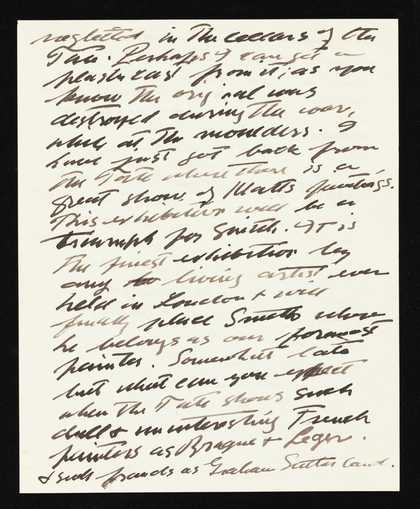 neglected in the cellars of the
Tate. Perhaps I can get a
plaster cast from it; as you
know the original was
destroyed during the war,
while at the moulders. I
have just got back from
the Tate where there is a
great show of Matts paintings.
This exhibition will be a
triumph for Smith. It is
the finest exhibition by
any living artist ever
held in London & will
finally place Smith where
he belongs as our foremost
painter. Somewhat late
but what can you expect
when the Tate shows such
dull & uninteresting French
painters as Braque & Leger.
& such frauds as Graham Sutherland.